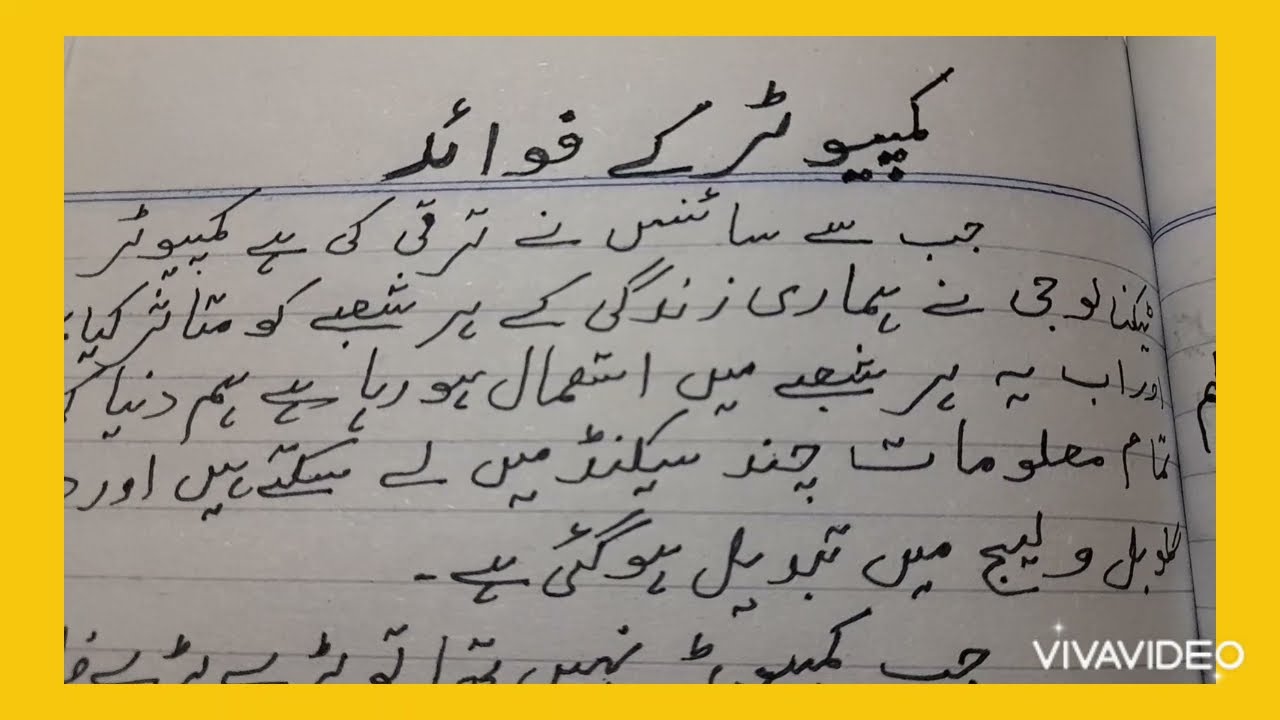 کمپیوٹر کے فوائد
جب سے سائنس نے ترقی کی ہے کمپیوٹر
ٹیکنالوجی نے ہماری زندگی کے ہر شعبے کو متاثر کیا
اور اب یہ ہر شعبے میں استعمال ہو رہا ہے ہم دنیا
تمام معلومات چند سیکنڈ میں لے سکتے ہیں اور
گلوبل ولیج میں تبدیل ہو گئی ہے۔
جب کمپیوٹر نہیں تھا تو بڑے بڑے
VIVAVIDEO